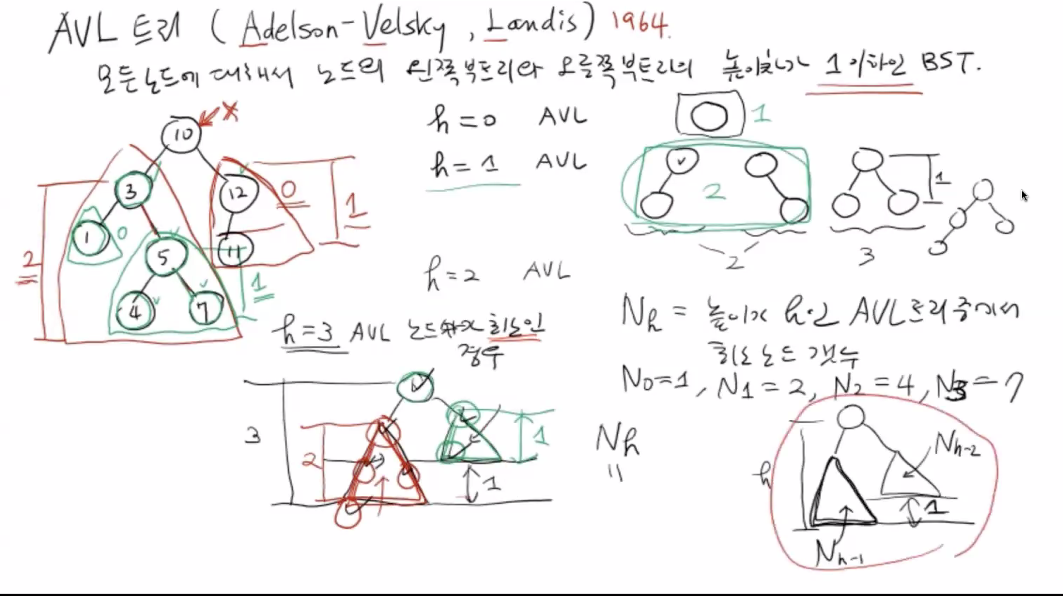 AVL 트리 ( Adelson-Velsky , Landis ) 1964.
모든 노드에 대해서 노드의 왼쪽부트리와 오른쪽부트리의 높이차가 1 이하인 BST.
10 X
3 12 0
1 0 5 11
4 7
2 1 1
h = 0 AVL
h = 1 AVL
1
2
2 3 1
h = 2 AVL
h = 3 AVL 노드 최소인
경우
3 2 1 1
Nh = 높이가 h인 AVL 트리 중에서
최소 노드 갯수
N0=1, N1=2, N2=4, N3=7
Nh
=
h Nh-2
1
Nh-1